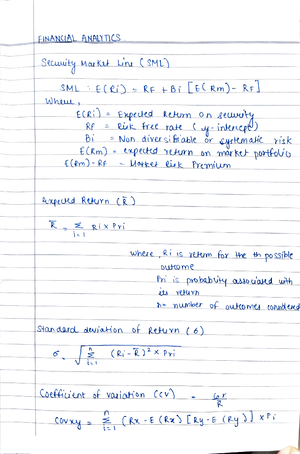 FINANCIAL ANALYTICS
Security Market Line (SML)
SML : E(Ri) = RF + Bi [E(Rm) - RF]
Where,
E(Ri) = Expected Return on security
RF = Risk free rate (y-intercept)
Bi = Non diversifiable or systematic risk
E(Rm) = expected return on market portfolio
E(Rm) - RF - Market Risk Premium
Expected Return (R̄)
R̄ = Σ i=1 Ri x Pri
where, Ri is return for the th possible
outcome
Pri is probability associated with
its return
n= number of outcomes considered
Standard deviation of Return (σ)
σ = √ n Σ i=1 (Ri - R̄)² x Pri
Coefficient of variation (CV) =
Covxy = n Σ i=1 (Rx - E (Rx) [Ry - E (Ry)] x Pi